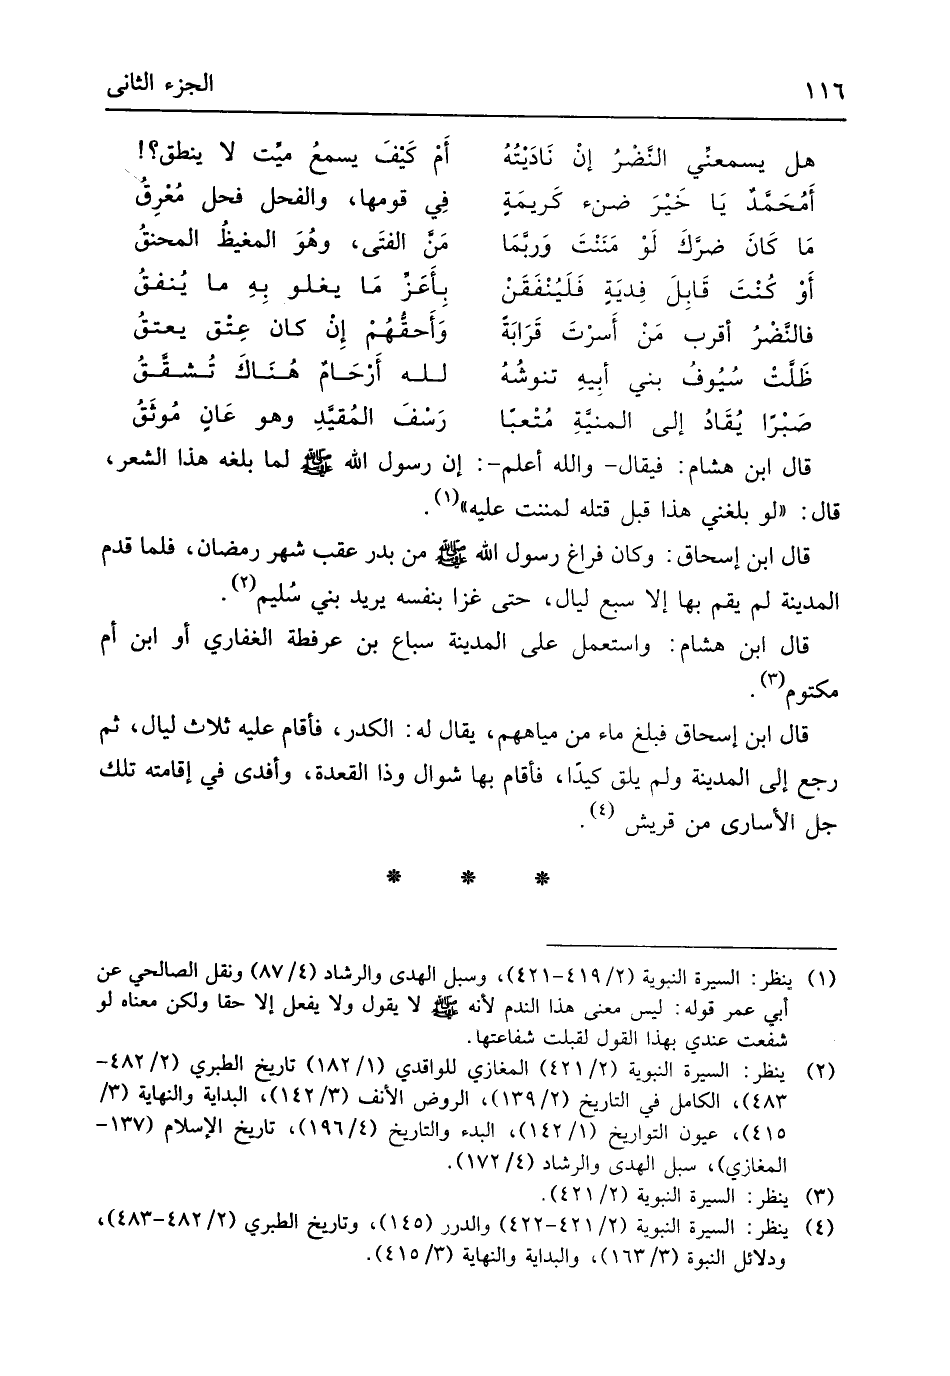 ١١٦ الجزء الثانى
هل يسمعنِّي النَّضْرُ إنْ نَادَيْتُهُ أَمْ كَيْفَ يسمعُ ميِّت لا ينطق؟!
أَمُحَمَّدٌ يَا خَيْرَ ضنء كَريمَةٍ فِي قومها، والفحل فحل مُعْرِقُ
مَا كَانَ ضرَّكَ لَوْ مَنَنْتَ وَربَّمَا مَنَّ الفتَى، وهُوَ المغيظُ المحنقُ
أَوْ كُنْتَ قَابِلَ فِديَةٍ فَلَيُنْفَقَنْ بِأَعَزِّ مَا يغلو بِهِ ما يُنفقُ
فالنَّضْرُ أقرب مَنْ أَسرْتَ قَرَابَةً وَأَحقُّهُمْ إِنْ كان عِتْق يعتقُ
ظَلَّتْ سُيُوفُ بني أبيهِ تنوشُهُ لـلـه أَرْحَـامٌ هُـنَـاكَ تُـشـقَّـقُ
صَبْرًا يُقَادُ إلى المنيَّةِ مُتْعبًا رَسْفَ المُقيَّدِ وهو عَانٍ مُوثَقُ
قال ابن هشام: فيقال- والله أعلم-: إن رسول الله ﷺ لما بلغه هذا الشعر،
قال: «لو بلغني هذا قبل قتله لمننت عليه»(١).
قال ابن إسحاق: وكان فراغ رسول الله ﷺ من بدر عقب شهر رمضان، فلما قدم
المدينة لم يقم بها إلا سبع ليال، حتى غزا بنفسه يريد بني سُليم(٢).
قال ابن هشام: واستعمل على المدينة سباع بن عرفطة الغفاري أو ابن أم
مكتوم(٣).
قال ابن إسحاق فبلغ ماء من مياههم، يقال له: الكدر، فأقام عليه ثلاث ليال، ثم
رجع إلى المدينة ولم يلق كيدًا، فأقام بها شوال وذا القعدة، وأفدى في إقامته تلك
جل الأسارى من قريش (٤).
* * *
(١) ينظر: السيرة النبوية (٢/ ٤١٩-٤٢١)، وسبل الهدى والرشاد (٤/ ٨٧) ونقل الصالحي عن
أبي عمر قوله: ليس معنى هذا الندم لأنه ﷺ لا يقول ولا يفعل إلا حقا ولكن معناه لو
شفعت عندي بهذا القول لقبلت شفاعتها.
(٢) ينظر: السيرة النبوية (٢/ ٤٢١) المغازي للواقدي (١/ ١٨٢) تاريخ الطبري (٢/ ٤٨٢-
٤٨٣)، الكامل في التاريخ (٢/ ١٣٩)، الروض الأنف (٣/ ١٤٢)، البداية والنهاية (٣/
٤١٥)، عيون التواريخ (١/ ١٤٢)، البدء والتاريخ (٤/ ١٩٦)، تاريخ الإسلام (١٣٧-
المغازي)، سبل الهدى والرشاد (٤/ ١٧٢).
(٣) ينظر: السيرة النبوية (٢/ ٤٢١).
(٤) ينظر: السيرة النبوية (٢/ ٤٢١-٤٢٢) والدرر (١٤٥)، وتاريخ الطبري (٢/ ٤٨٢-٤٨٣)،
ودلائل النبوة (٣/ ١٦٣)، والبداية والنهاية (٣/ ٤١٥).